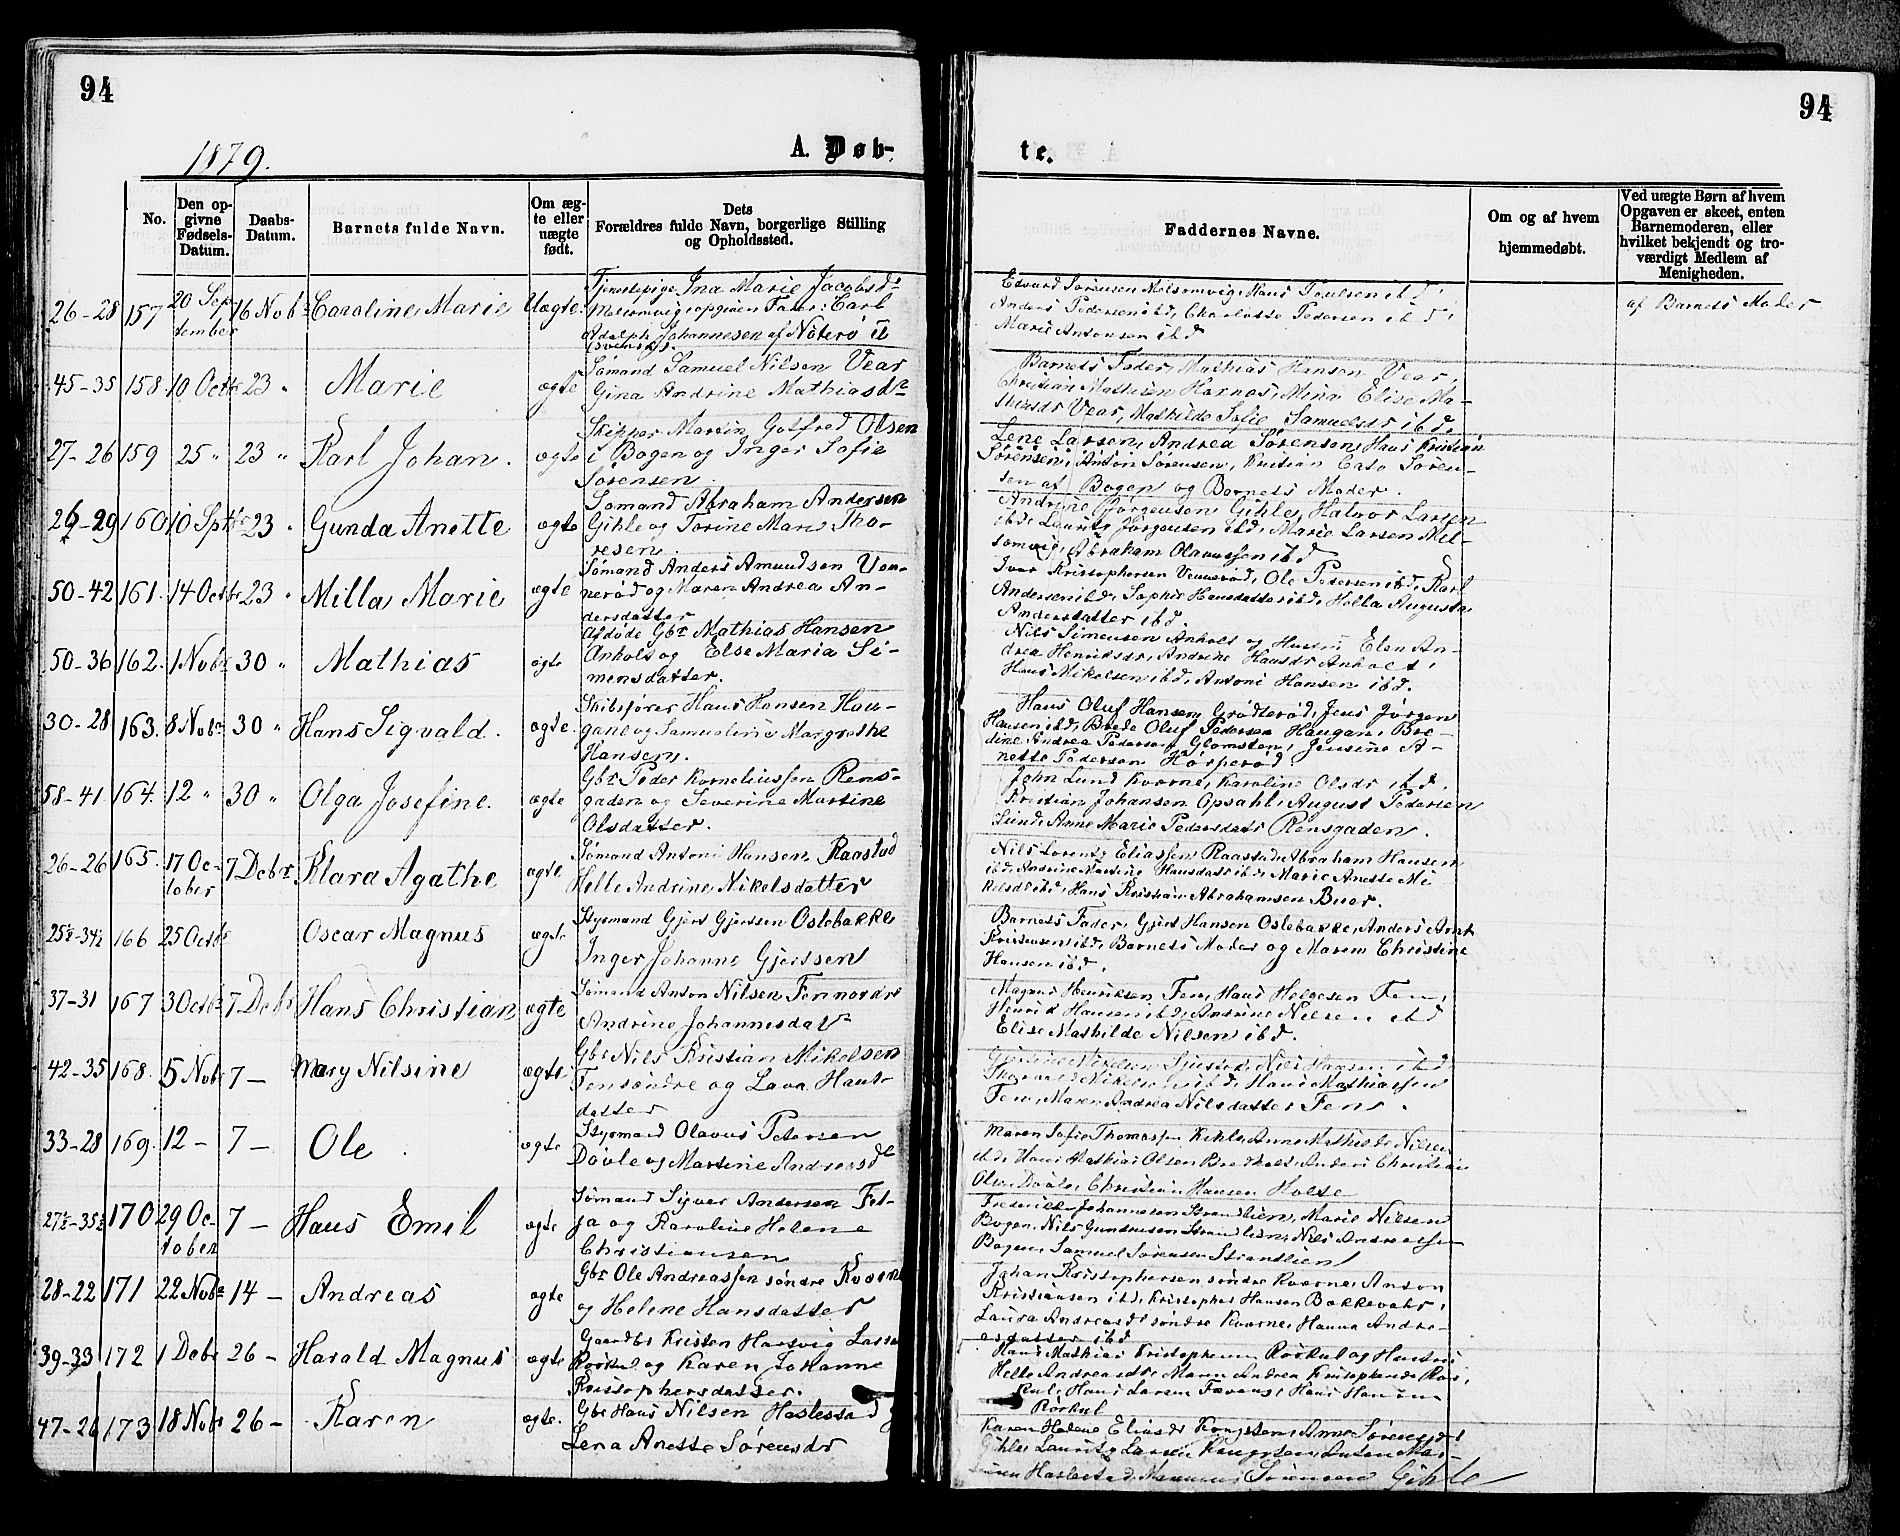 94
94
1879.
A. Døb-
te.
No.
Den op-
givne
Fødsels-
Datum.
Daabs-
Datum.
Barnets fulde Navn.
Om æg-
te eller
uægte
født.
Dets
Forældres fulde Navn, borgerlige Stilling
og Opholdssted.
Faddernes Navne.
Om og af hvem
hjemmedøbt.
Ved uægte Børn af hvem
Opgaven er skeet, enten
Barnemoderen, eller
hvilket bekjendt og tro-
værdigt Medlem af
Menigheden.
26-28 157 20 Sep- 16 Nobr Caroline Marie Uægte
tember
Tjenestepige Ina Marie Jacobsdr
Melsomvig, opgiven Fader: Carl
Adolph Johannesen af Nøterø
(svensk).
Edvard Sørensen Melsomvig, Hans Poulsen ibd,
Anders Pedersen ibd, Charlotte Pedersen ibd,
Marie Antonsen ibd
af Barnets Moder
45-35 158. 10 Octbr 23 " Marie ægte
Sømand Samuel Nilsen Vear
Gina Andrine Mathiasdr
Barnets Fader, Mathias Hansen Vear,
Christian Mathisen Hornes, Mina Elise Ma-
thiasdr Vear, Mathilde Sofie Samuelsdr ibd.
27-26 159 25 " 23 " Karl Johan. ægte
Skipper Martin Gotfred Olsen
i Bogen og Inger Sofie
Sørensen.
Lene Larsen, Andrea Sørensen, Hans Kristian
Sørensen, Anton Sørensen, Kristian Søren-
sen af Bogen og Barnets Moder.
26-29 160 10 Septbr 23 " Gunda Anette ægte
Sømand Abraham Andersen
Gihle og Torine Marie Tho-
resen.
Andrine Jørgensen Gihle, Halvor Larsen
ibd, Lauritz Jørgensen ibd, Marie Larsen Mel-
somvig, Abraham Olavussen ibd
50-42 161. 14 Octbr 23 " Milla Marie ægte
Sømand Anders Amundsen Ven-
nerød og Maren Andrea An-
dersdatter
Iver Kristophersen Vennerød, Ole Pedersen ibd, Karl
Andersen ibd, Sophie Hansdatter ibd, Helle Augusta
Andersdatter ibd.
50-36 162. 1 Nobr 30 " Mathias ægte
Afdøde Gbr Mathias Hansen
Anholt og Else Maria Si-
mensdatter.
Nils Simensen Anholt og Hustru Elen An-
drea Henriksdr, Andrine Hansdr Anholt,
Hans Mikelsen ibd, Antoni Hansen ibd.
30-28 163. 8 Nobr 30 " Hans Sigvald. ægte
Skibsfører Hans Hansen Hau-
gane og Samueline Margrethe
Hansen.
Hans Oluf Hansen Grødterød, Jens Jørgen
Hansen ibd, Brede Oluf Pedersen Haugan, Bre-
dine Andrea Pedersen Glomsten, Jensine A-
nette Pedersen Hørperød
58-41 164. 12 " 30 " Olga Josefine. ægte
Gbr Peder Korneliussen Rens-
gaden og Severine Martine
Olsdatter.
John Lund Kvarne, Karoline Olsdr ibd.
Kristian Johansen Opsahl, August Pedersen
Lund, Anne Marie Pedersdatr Rensgaden.
26-26 165. 17 Oc- 7 Debr Klara Agathe ægte
tober
Sømand Antoni Hansen Raastad
Helle Andrine Mikelsdatter
Nils Lorentz Eliassen Raastad, Abraham Hansen
ibd, Andrine Martine Hansdatr ibd, Marie Anette Mi-
kelsdr ibd, Hans Kristian Abrahamsen Buer.
25½-34½ 166 25 Octbr Oscar Magnus ægte
Styrmand Gjert Gjertsen Oslebakke
Inger Johanne Gjertsen
Barnets Fader, Gjert Hansen Oslebakke, Anders Arnt
Kristensen ibd, Barnets Moder og Maren Christine
Hansen ibd.
37-31 167 3 Octbr 7 Debr Hans Christian ægte
Sømand Anton Nilsen Fen nordre
Andrine Johannesdatr
Magnus Henriksen Fen, Hans Helgesen Fen,
Henrik Hansen ibd, Andrine Nilsen ibd
Elise Mathilde Nilsen ibd.
42-35 168. 5 Nobr 7 — Mary Nilsine ægte
Gbr Nils Kristian Mikelsen
Fen søndre og Lava Hans-
datter
Nils Hansen ibd
Mikelsen ibd, Hans Mathiassen
Fen, Maren Andrea Nilsdatter Fen.
33-28 169. 12 — 7 — Ole ægte
Styrmand Olavus Petersen
Døvle og Martine Andreasdr
Maren Sofie Thomassen Kihle, Anne Mathilde Nilsen
ibd, Hans Mathias Olsen Bredholt, Anders Christian
Olsen Døvle, Christian Hansen Holte
27½-35½ 170 29 Oc- 7 — Hans Emil ægte
tober
Sømand Sigver Andersen Fel-
ja og Karoline Helene
Christiansen
Frederikke Johannesen Strandlien, Marie Nilsen
Bogen, Nils Gundersen Strandlien, Nils Andreassen
Bogen, Samuel Sørensen Strandlien
28-22 171 22 Nobr 14 — Andreas ægte
Gbr Ole Andreassen søndre Kvarne
og Helene Hansdatter
Johan Kristophersen søndre Kvarne, Anton
Kristiansen ibd, Kristopher Hansen Bakkevahr,
Laura Andreasdr søndre Kvarne, Hanna Andre-
asdatter ibd
39-33 172 1 Debr 26 — Harald Magnus ægte
Gaardbr Kristen Hartvig Larsen
Rørkul og Karen Johanne
Kristophersdatter.
Hans Mathias Kristophersen Rørkul og Hustru
Helle Andreasdr, Maren Andrea Kristophersdr Rør-
kul, Hans Larsen Hans Hansen
Rørkul
47-26 173 18 Nobr 26 — Karen ægte.
Gbr Hans Nilsen Haslestad og
Lena Anette Sørensdr
Karen Helene Eliasdr Kongsten, Anne Sørensdr
Gihle, Lauritz Larsen Kongsten, Anton Mar-
Haslestad, Sørensen Gihle